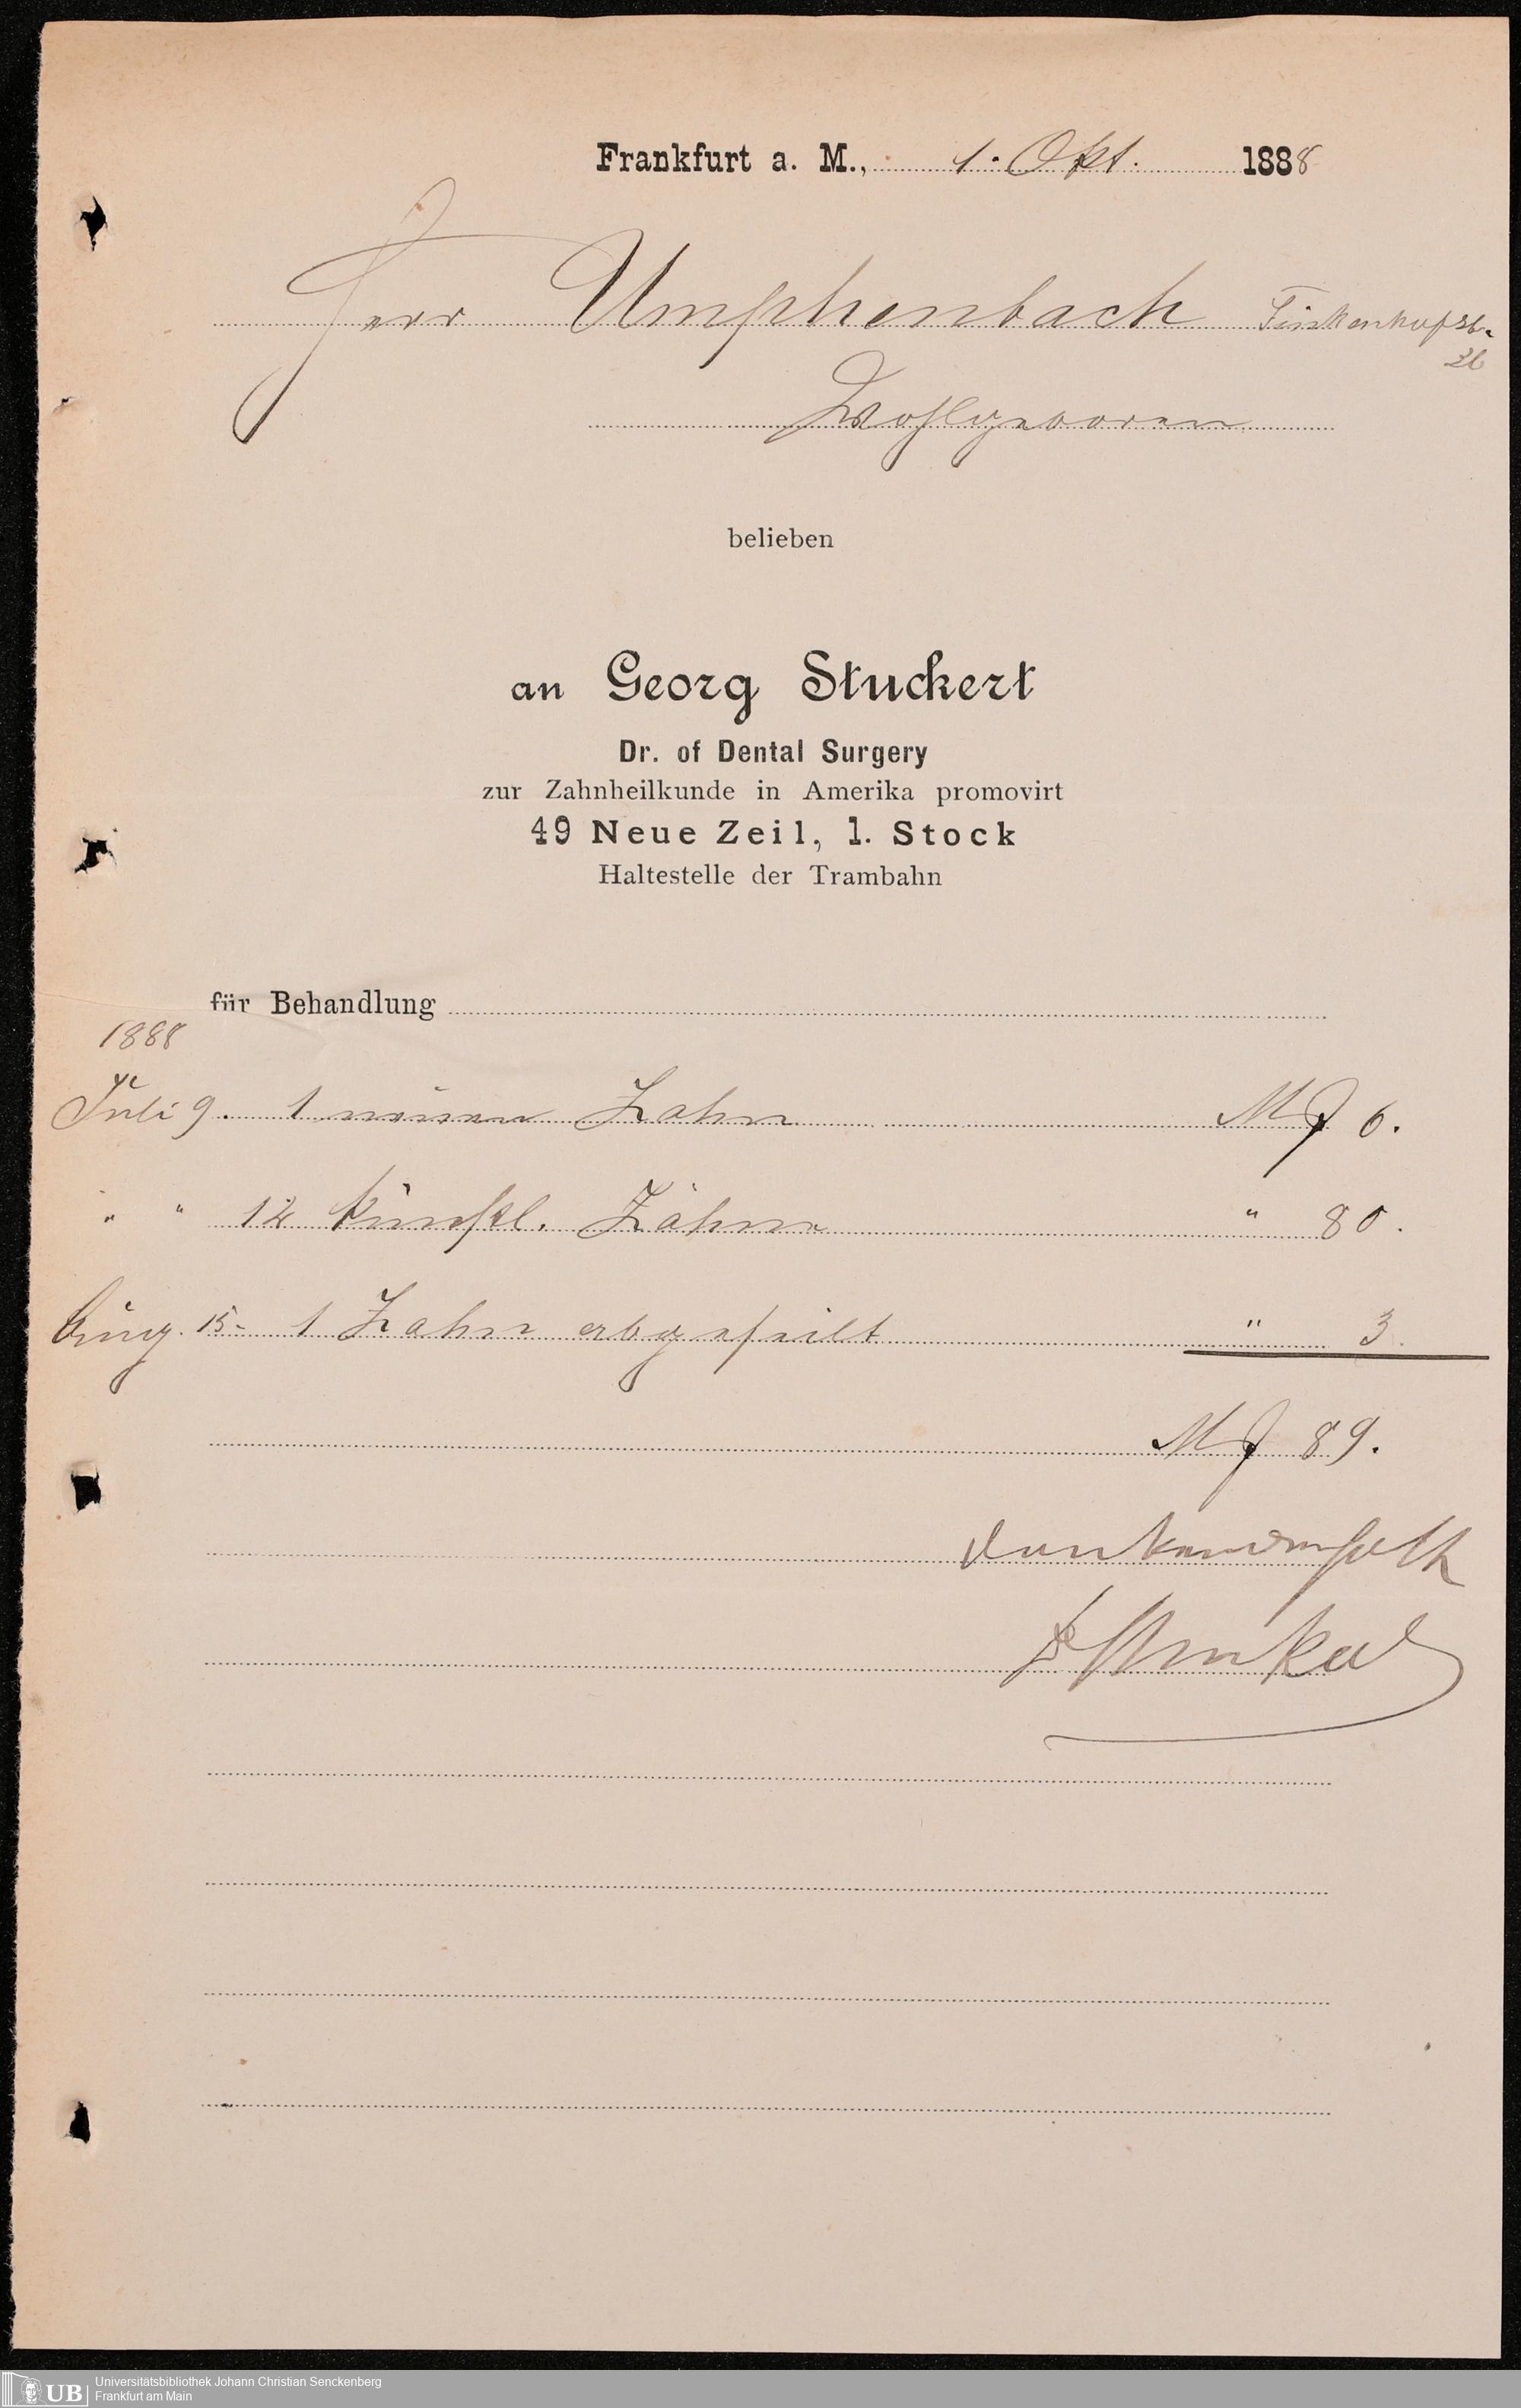 Frankfurt a. M., 1. Okt. 1888
Herr Umphenbach Finkenhofstr.
Wohlgeboren
belieben
an Georg Stuckert
Dr. of Dental Surgery
zur Zahnheilkunde in Amerika promovirt
49 Neue Zeil, 1. Stock
Haltestelle der Trambahn
für Behandlung
1888
Juli 9. 1 neuen Zahn M 6.
" " 12 künstl. Zähne " 80.
Aug. 15. 1 Zahn abgefeilt " 3.
M 89.
dankend erhalten
Dr Stuckert
UB Universitätsbibliothek Johann Christian Senckenberg
Frankfurt am Main